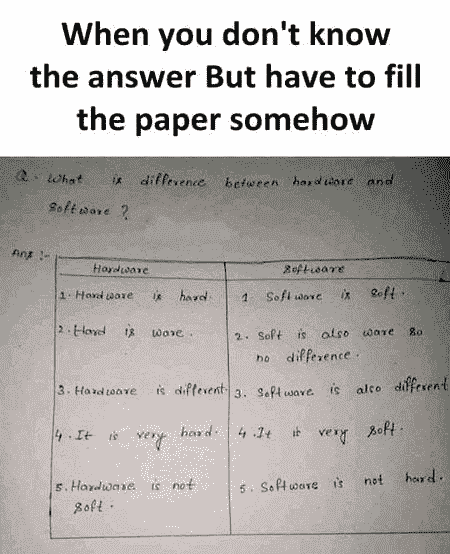 When you don't know
the answer But have to fill
the paper somehow
Q. What is difference between hardware and
Software ?
Ans :-
Hardware
Software
1. Hardware is hard.
1 Software is soft.
2. Hard is ware.
2. Soft is also ware so
no difference.
3. Hardware is different.
3. Software is also different
4. It is very hard.
4. It is very soft.
5. Hardware is not
soft.
5. Software is not hard.